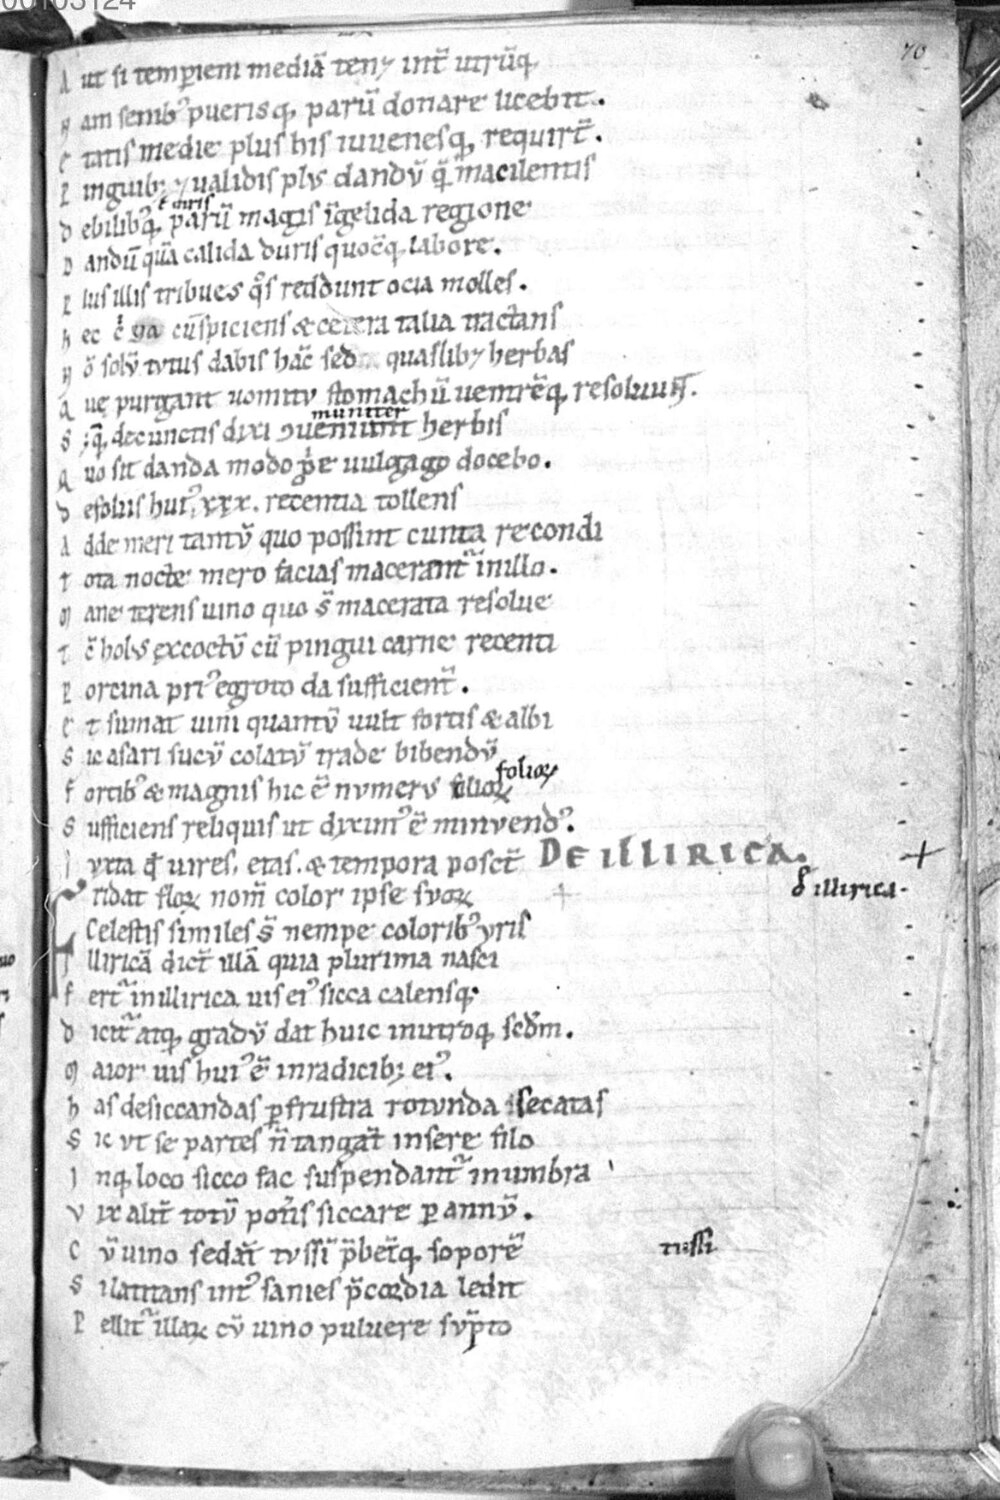 00103124
70
A ut si temp̄iem mediā teneꝫ int̄ utrūq,
N am senib᾿ puerisq, parū donare licebit.
E tatis medie plus his iuuenesq, requir̄t.
P inguibꝫ ⁊ ualidis plus dandū q̄ macilentis
D ebilib᾿q, parū magis ī gelida regione
D andū quā calida duris quoq, labore.
P lus illis tribues q̊s reddunt ocia molles.
h ec cūspiciens & cetera talia tractans
N ō solū tutus dabis hāc sed quaslibꝫ herbas
Q ue purgant uomitu stomachū uentrēq, resoluunt.
muniter
S ꝫ q̄ de cunctis dixi ↄueniunt herbis
Q uo sit danda modo p̄be uulgago docebo.
D e foliis hui᾿ xxx. recentia tollens
A dde meri tantū quo possint cunta recondi
T ota nocte mero facias macerant᷑ in illo.
M ane terens uino quo s̄ macerata resolue
T c̄ holus excoctū cū pingui carne recenti
P orcina pri᾿ egroto da sufficient᷑.
E t sumat uini quantū uult fortis & albi
S ic asari sucū colatū trade bibendū
folioꝝ
F ortib᾿ & magnis hic ē numerus filioꝝ
S ufficiens reliquis ut diximꝰ ē minuend᾿.
I uxta qđ uires, etas, & tempora posc̄t DE ILLIRICA.
đ illirica.
I ridat floꝝ nom̄ color ipse suoꝝ
Celestis similes s̄ nempe colorib᾿ yris
I lliricā dict̄ illā quia plurima nasci
F ert᷑ in illirica uis ei᾿ sicca calensq,
D icit᷑ atq, gradū dat huic in utroq, sc̄dm.
M aior uis hui᾿ ē in radicibꝫ ei᾿.
h as desiccandas ꝑ frustra rotunda secatas
S ic ut se partes n̄ tangat̄ insere filo
I nq, loco sicco fac suspendant᷑ in umbra
V ix alit̄ totū pot̄is siccare ꝑ annū.
C ū uino sedāt tussī p̄bet̄q, soporē
tussi
S i latitans int᾿ sanies p̄cordia ledit
P ellit᷑ illaꝝ cū uino puluere sūpto